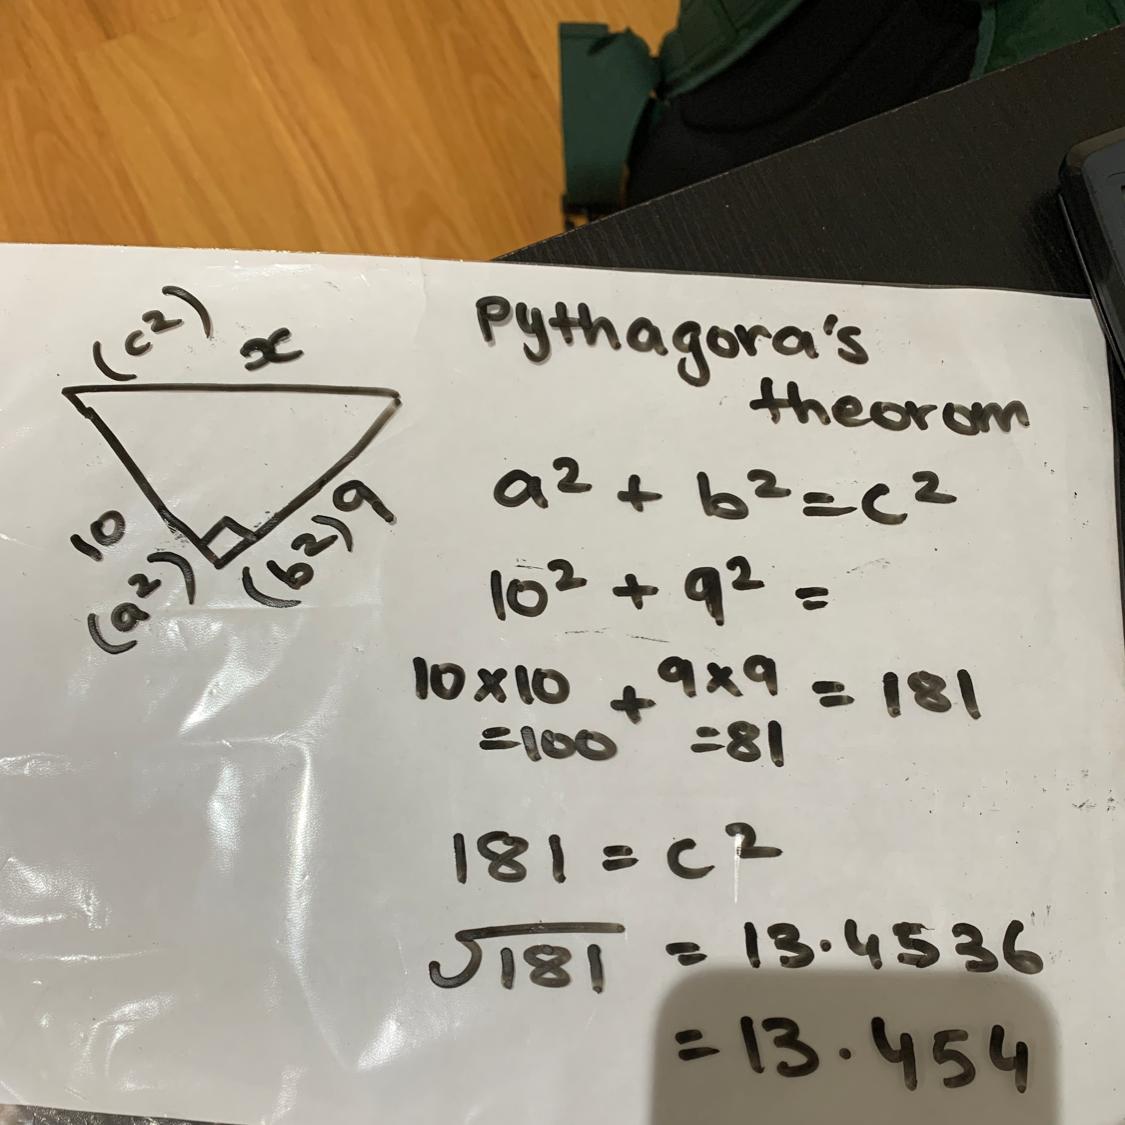 (c²) x
10
(a²)
(b²) 9
Pythagora's
theorom
a² + b² = c²
10² + 9² =
10×10 + 9×9 = 181
=100 =81
181 = c²
√181 = 13.4536
= 13.454